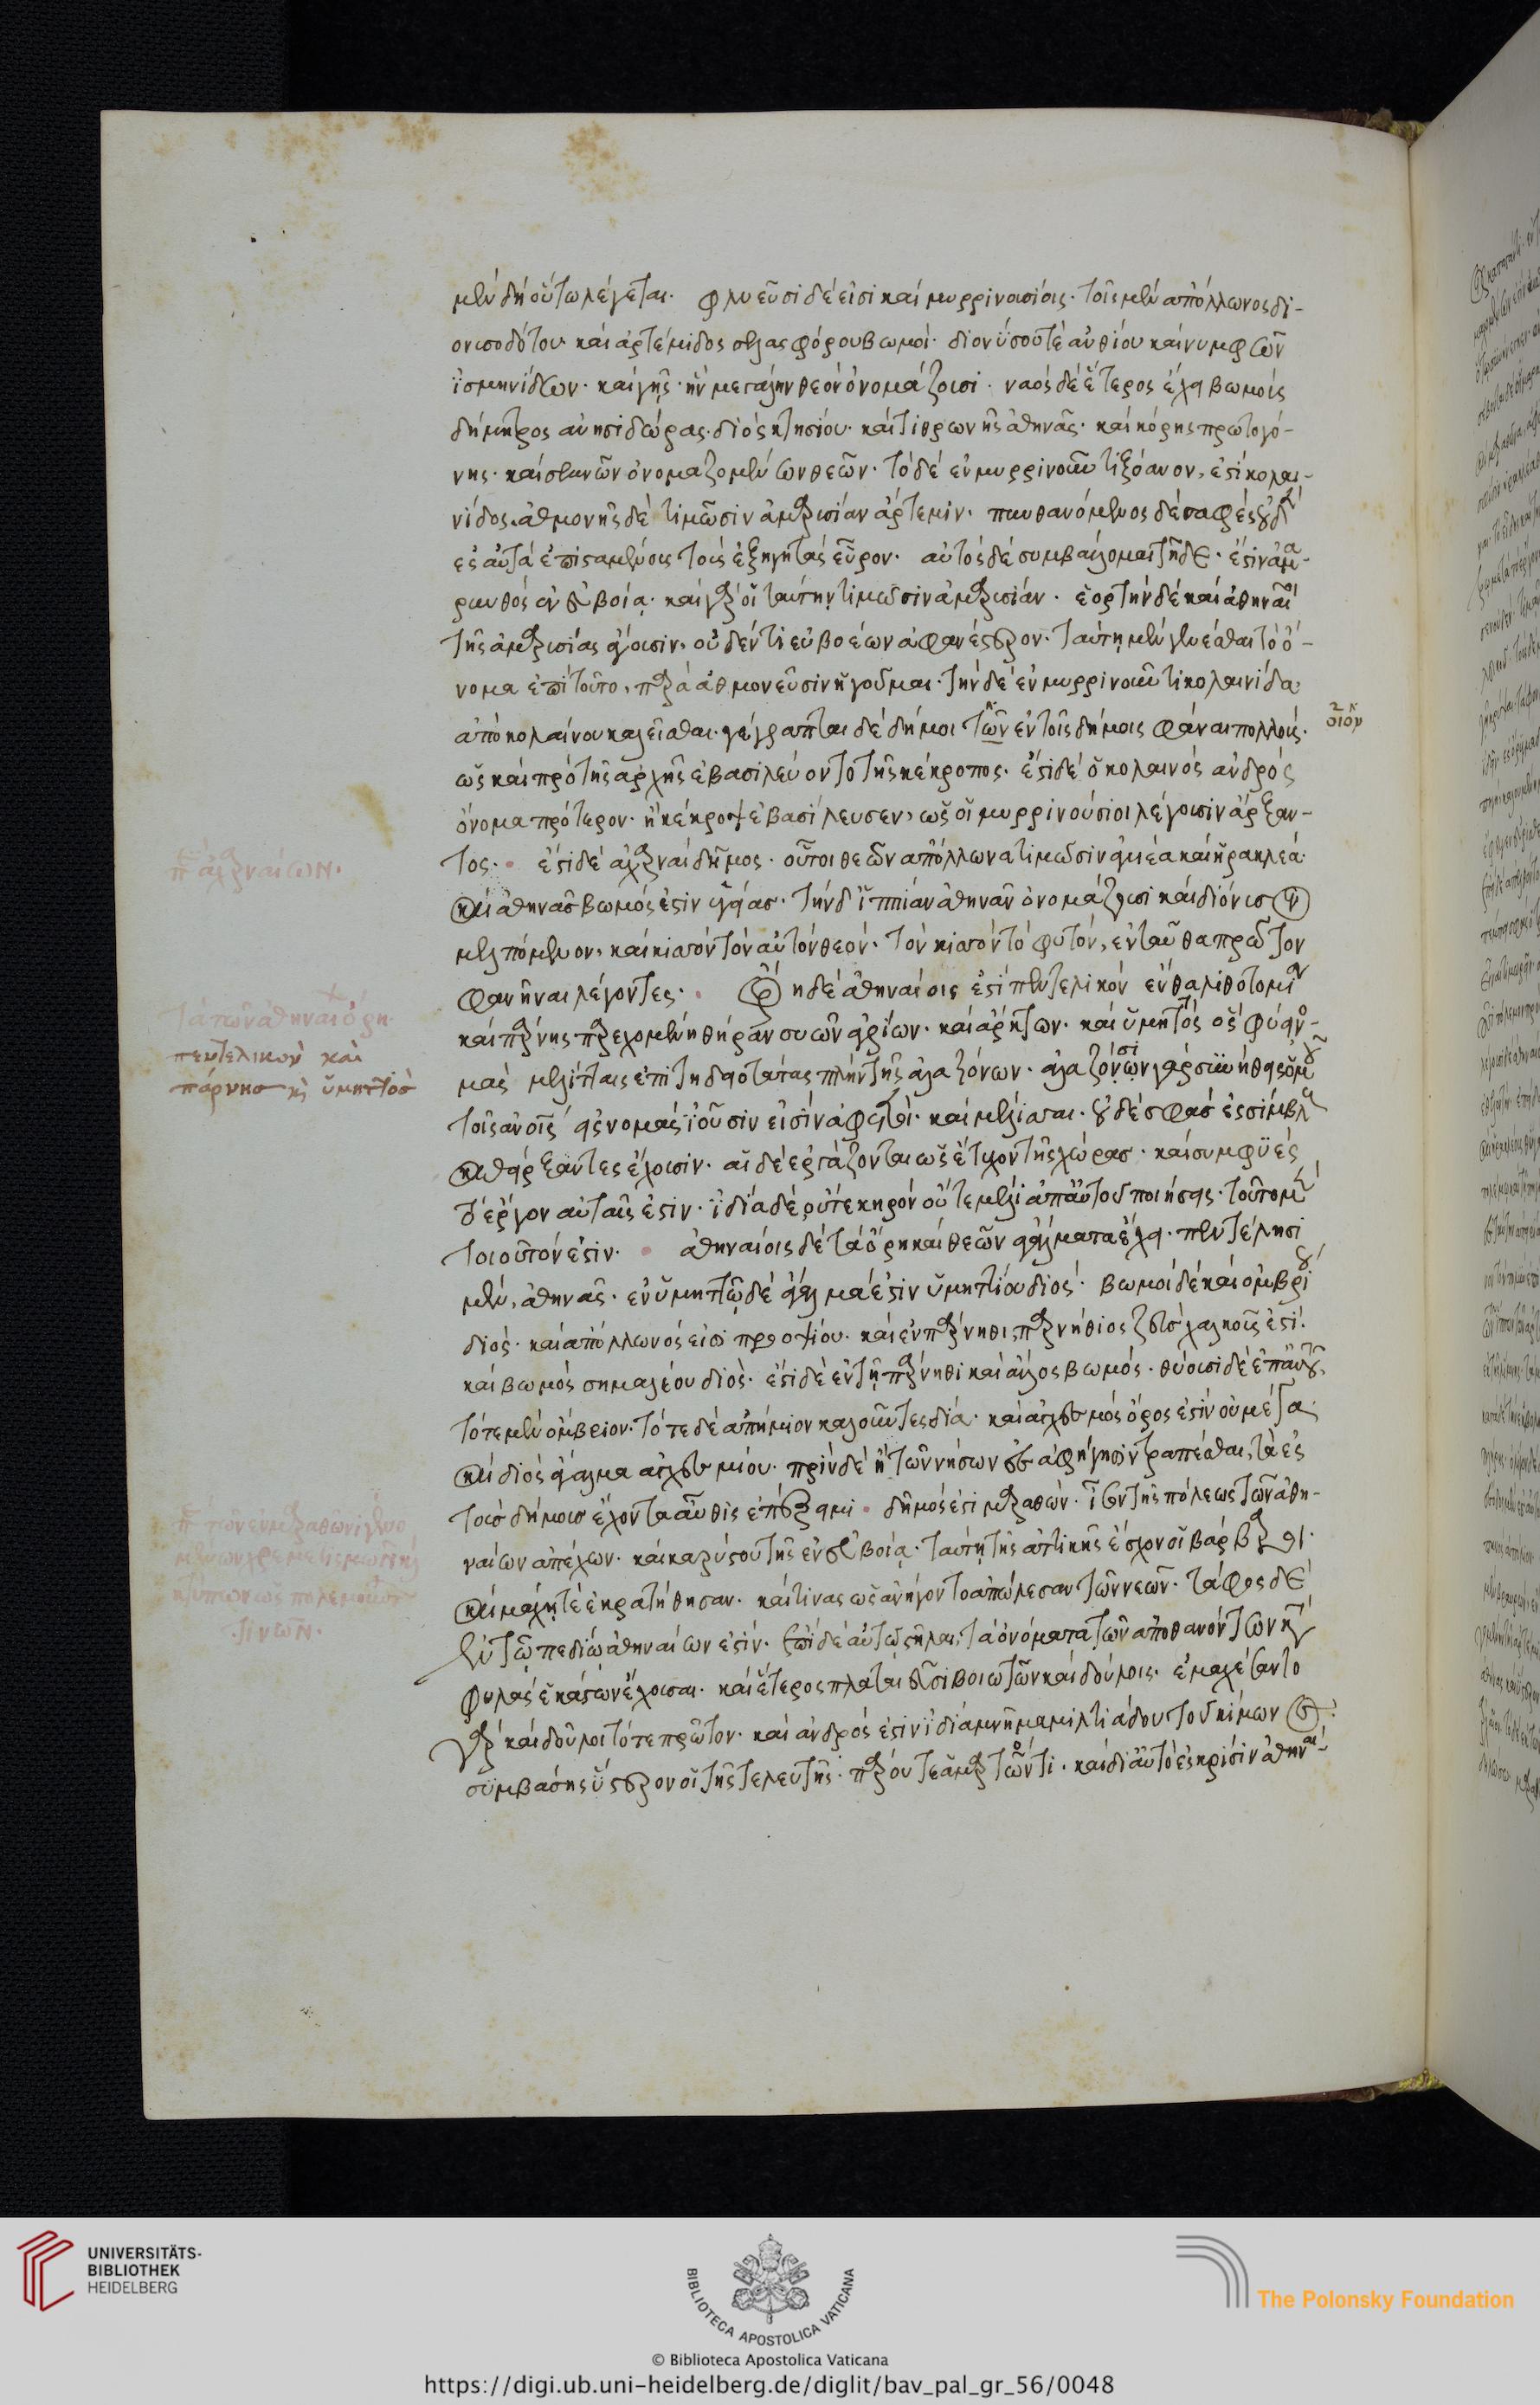 μὲν δὴ οὕτω λέγεται. φλυεῦσι δέ εἰσι καὶ μυρρινουσίοις. τοῖς μὲν ἀπόλλωνος δι-
ονυσοδότου καὶ ἀρτέμιδος σελασφόρου βωμοί. διονύσου τὲ ἀνθίου καὶ νυμφῶν
ἰσμηνίδων. καὶ γῆς. ἣν μεγάλην θεὸν ὀνομάζουσι. ναὸς δὲ ἕτερος ἔχει βωμοὺς
δήμητρος ἀνησιδώρας. διὸς κτησίου. καὶ τιθρωνῆς ἀθηνᾶς. καὶ κόρης πρωτογό-
νης. καὶ σεμνῶν ὀνομαζομένων θεῶν. τὸ δὲ ἐν μυρρινοῦντι ξόανον, ἐστὶ κολαι-
νίδος. ἀθμονῆς δὲ τιμῶσιν ἀμαρυσίαν ἄρτεμιν. πυνθανόμενος δὲ σαφὲς οὐδὲν
ἐς αὐτὰ ἐπισταμένους τοὺς ἐξηγητὰς εὗρον. αὐτὸς δὲ συμβάλλομαι τῆδε. ἔστιν ἀμα-
ρυνθὸς ἐν εὐβοίᾳ. καὶ γὰρ οἱ ταύτῃ τιμῶσιν ἀμαρυσίαν. ἑορτὴν δὲ καὶ ἀθηναῖοι
τῆς ἀμαρυσίας ἄγουσιν, οὐδέν τι εὐβοέων ἀφανέστερον. ταύτῃ μὲν γενέσθαι τὸ ὄ-
νομα ἐπὶ τοῦτο, παρὰ ἀθμονεῦσιν ἡγοῦμαι. τὴν δὲ ἐν μυρρινοῦντι κολαινίδα
ἀπὸ κολαίνου καλεῖσθαι. γέγραπται δὲ δήμοι τῶν ἐν τοῖς δήμοις φάναι πολλοὺς.
ὡς καὶ πρὸ τῆς ἀρχῆς ἐβασιλεύοντο τῆς κέκροπος. ἔστι δὲ ὁ κολαινὸς ἀνδρὸς
ὄνομα πρότερον. ἢ κέκροψ ἐβασίλευσεν, ὡς οἱ μυρρινούσιοι λέγουσιν ἄρξαν-
τος. ἔστι δὲ ἀχαρναὶ δῆμος. οὗτοι θεῶν ἀπόλλωνα τιμῶσιν ἀγυιέα καὶ ἡρακλέα
καὶ ἀθηνᾶς βωμός ἐστιν ὑγείας. τὴν δ' ἱππίαν ἀθηνᾶν ὀνομάζουσι καὶ διόνυσον
μελπόμενον. καὶ κισσὸν τὸν αὐτὸν θεόν. τὸν κισσὸν τὸ φυτόν, ἐνταῦθα πρῶτον
φανῆναι λέγοντες. ὄρη δὲ ἀθηναίοις ἐστὶ πεντελικὸν ἔνθα λιθοτομίαι
καὶ πάρνης παρεχομένη θήραν συῶν ἀγρίων. καὶ ἄρκτων. καὶ ὑμηττὸς ὃς φύει νο-
μὰς μελίτταις ἐπιτηδειοτάτας πλὴν τῆς ἀλαζόνων. ἀλαζόνων γὰρ συνήθεις ὁμοῦ
τοῖς ἀνοῖς ἐς νομὰς ἰοῦσιν εἰσὶν ἄφετοι. καὶ μέλισσαι. οὐδὲ σφᾶς ἐς σίμβλα
καθείρξαντες ἔχουσιν. αἱ δὲ ἐργάζονται ὡς ἔτυχον τῆς χώρας. καὶ συμφυὲς
τὸ ἔργον αὐταῖς ἐστιν. ἰδίᾳ δὲ οὔτε κηρὸν οὔτε μέλι ἀπ' αὐτοῦ ποιήσεις. τοῦτο μὲν
τοιοῦτόν ἐστιν. ἀθηναίοις δὲ τὰ ὄρη καὶ θεῶν ἀγάλματα ἔχει. πεντέλησι
μὲν, ἀθηνᾶς. ἐν ὑμηττῷ δὲ ἄγαλμά ἐστιν ὑμηττίου διός. βωμοὶ δὲ καὶ ὀμβρίου
διός. καὶ ἀπόλλωνός εἰσι προοψίου. καὶ ἐν πάρνηθι, παρνήθιος ζεὺς χαλκοῦς ἐστί.
καὶ βωμὸς σημαλέου διός. ἔστι δὲ ἐν τῇ πάρνηθι καὶ ἄλλος βωμός. θύουσι δὲ ἐπ' αὐτοῦ,
τότε μὲν ὄμβριον. τότε δὲ ἀπήμιον καλοῦντες δία. καὶ ἀγχεσμὸς ὄρος ἐστὶν οὐ μέγα
καὶ διὸς ἄγαλμα ἀγχεσμίου. πρὶν δὲ ἢ τῶν νήσων ἐς ἀφήγησιν τραπέσθαι, τὰ ἐς
τοὺς δήμους ἔχοντα αὖθις ἐπέξειμι. δῆμός ἐστι μαραθών. ἴσον τῆς πόλεως τῶν ἀθη-
ναίων ἀπέχων. καὶ καρύστου τῆς ἐν εὐβοίᾳ. ταύτῃ τῆς ἀττικῆς ἔσχον οἱ βάρβαροι.
καὶ μάχῃ τὲ ἐκρατήθησαν. καί τινας ὡς ἀνήγοντο ἀπώλεσαν τῶν νεῶν. τάφος δὲ
ἐν τῷ πεδίῳ ἀθηναίων ἐστίν. ἐπὶ δὲ αὐτῷ στῆλαι, τὰ ὀνόματα τῶν ἀποθανόντων κατὰ
φυλὰς ἑκάστων ἔχουσαι. καὶ ἕτερος πλαταιεῦσι βοιωτῶν καὶ δούλοις. ἐμαχέσαντο
γὰρ καὶ δοῦλοι τότε πρῶτον. καὶ ἀνδρός ἐστιν ἰδίᾳ μνῆμα μιλτιάδου τοῦ κίμωνος.
συμβάσης ὕστερόν οἱ τῆς τελευτῆς. πάρου τε ἁμαρτόντι. καὶ δι' αὐτὸ ἐς κρίσιν ἀθηναί-
π ἀχαρναίων.
τὰ τῶν ἀθηναίων ὄρη
πεντελικὸν καὶ
πάρνησ κ ὑμηττὸσ